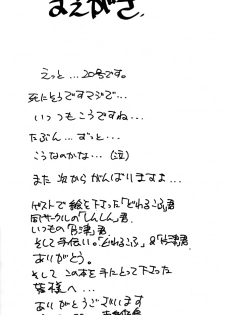 まえがき.
えっと…20号です。
死にそうですマジで…
いつもこうですね…
たぶん… ずっと…
こうなのかな… (泣)
また次からがんばりますよ…
ゲストで絵を下さった「どわるこふ」君
同サークルの「しんしん」君
いつもの 君
そして手伝い。「どわるこふ」& 君
ありがとう。
そして この本を手にとって下さった
皆様へ…
ありがとうございます